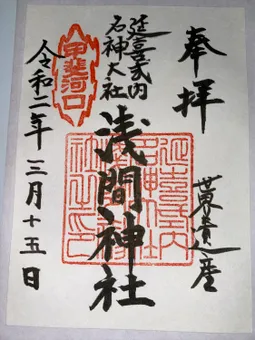 奉拝
世界遺産
延喜式内
名神大社
浅間神社
甲斐河口
令和二年三月十五日